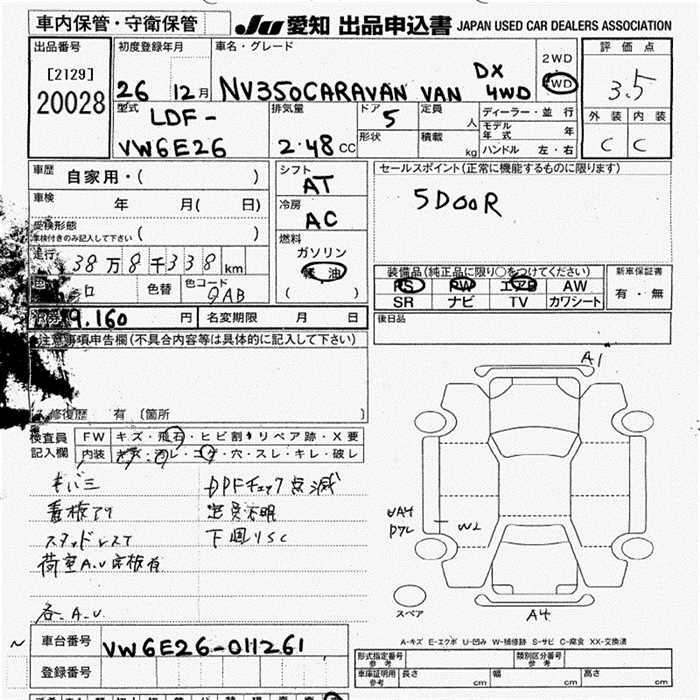 車内保管・守衛保管 JU 愛知 出品申込書 JAPAN USED CAR DEALERS ASSOCIATION
出品番号 初度登録年月 車名・グレード 2WD 評価点
[2129] 26 12月 NV350CARAVAN VAN DX 4WD 4WD 3.5
20028
型式 LDF- 排気量 ドア 5 定員 人 ディーラー・並行 外装 内装
VW6E26 2.48 CC 形状 積載 kg モデル年式 年 C C
ハンドル 左・右
車歴 自家用・( ) シフト AT セールスポイント(正常に機能するものに限ります)
車検 年 月( 日) 冷房 AC 5DOOR
受検形態
車検付きのみ記入して下さい ( )
燃料
走行 38万8千338 km ガソリン
軽油
( )
装備品(純正品に限り○をつけてください) 新車保証書
色 シロ 色替 色コード QAB PS PW エアB AW 有・無
SR ナビ TV カワシート
9.160 円 名変期限 月 日 後日品
注意事項申告欄(不具合内容等は具体的に記入して下さい)
A1
修復歴 有 (箇所 )
検査員 FW キズ・飛石・ヒビ割・リペア跡・X要
記入欄 内装 キズ・汚レ・コゲ・穴・スレ・キレ・破レ
キバミ DPFチェック点滅
看板アリ 定員不明
下回りSC
W2
各.A.U.
スペア A4
A-キズ E-エクボ U-凹み W-補修跡 S-サビ C-腐食 XX-交換済
車台番号 VW6E26-011261
登録番号
形式指定番号 参考 類別区分番号 参考
車庫証明用 参考 長さ cm 幅 cm 高さ cm